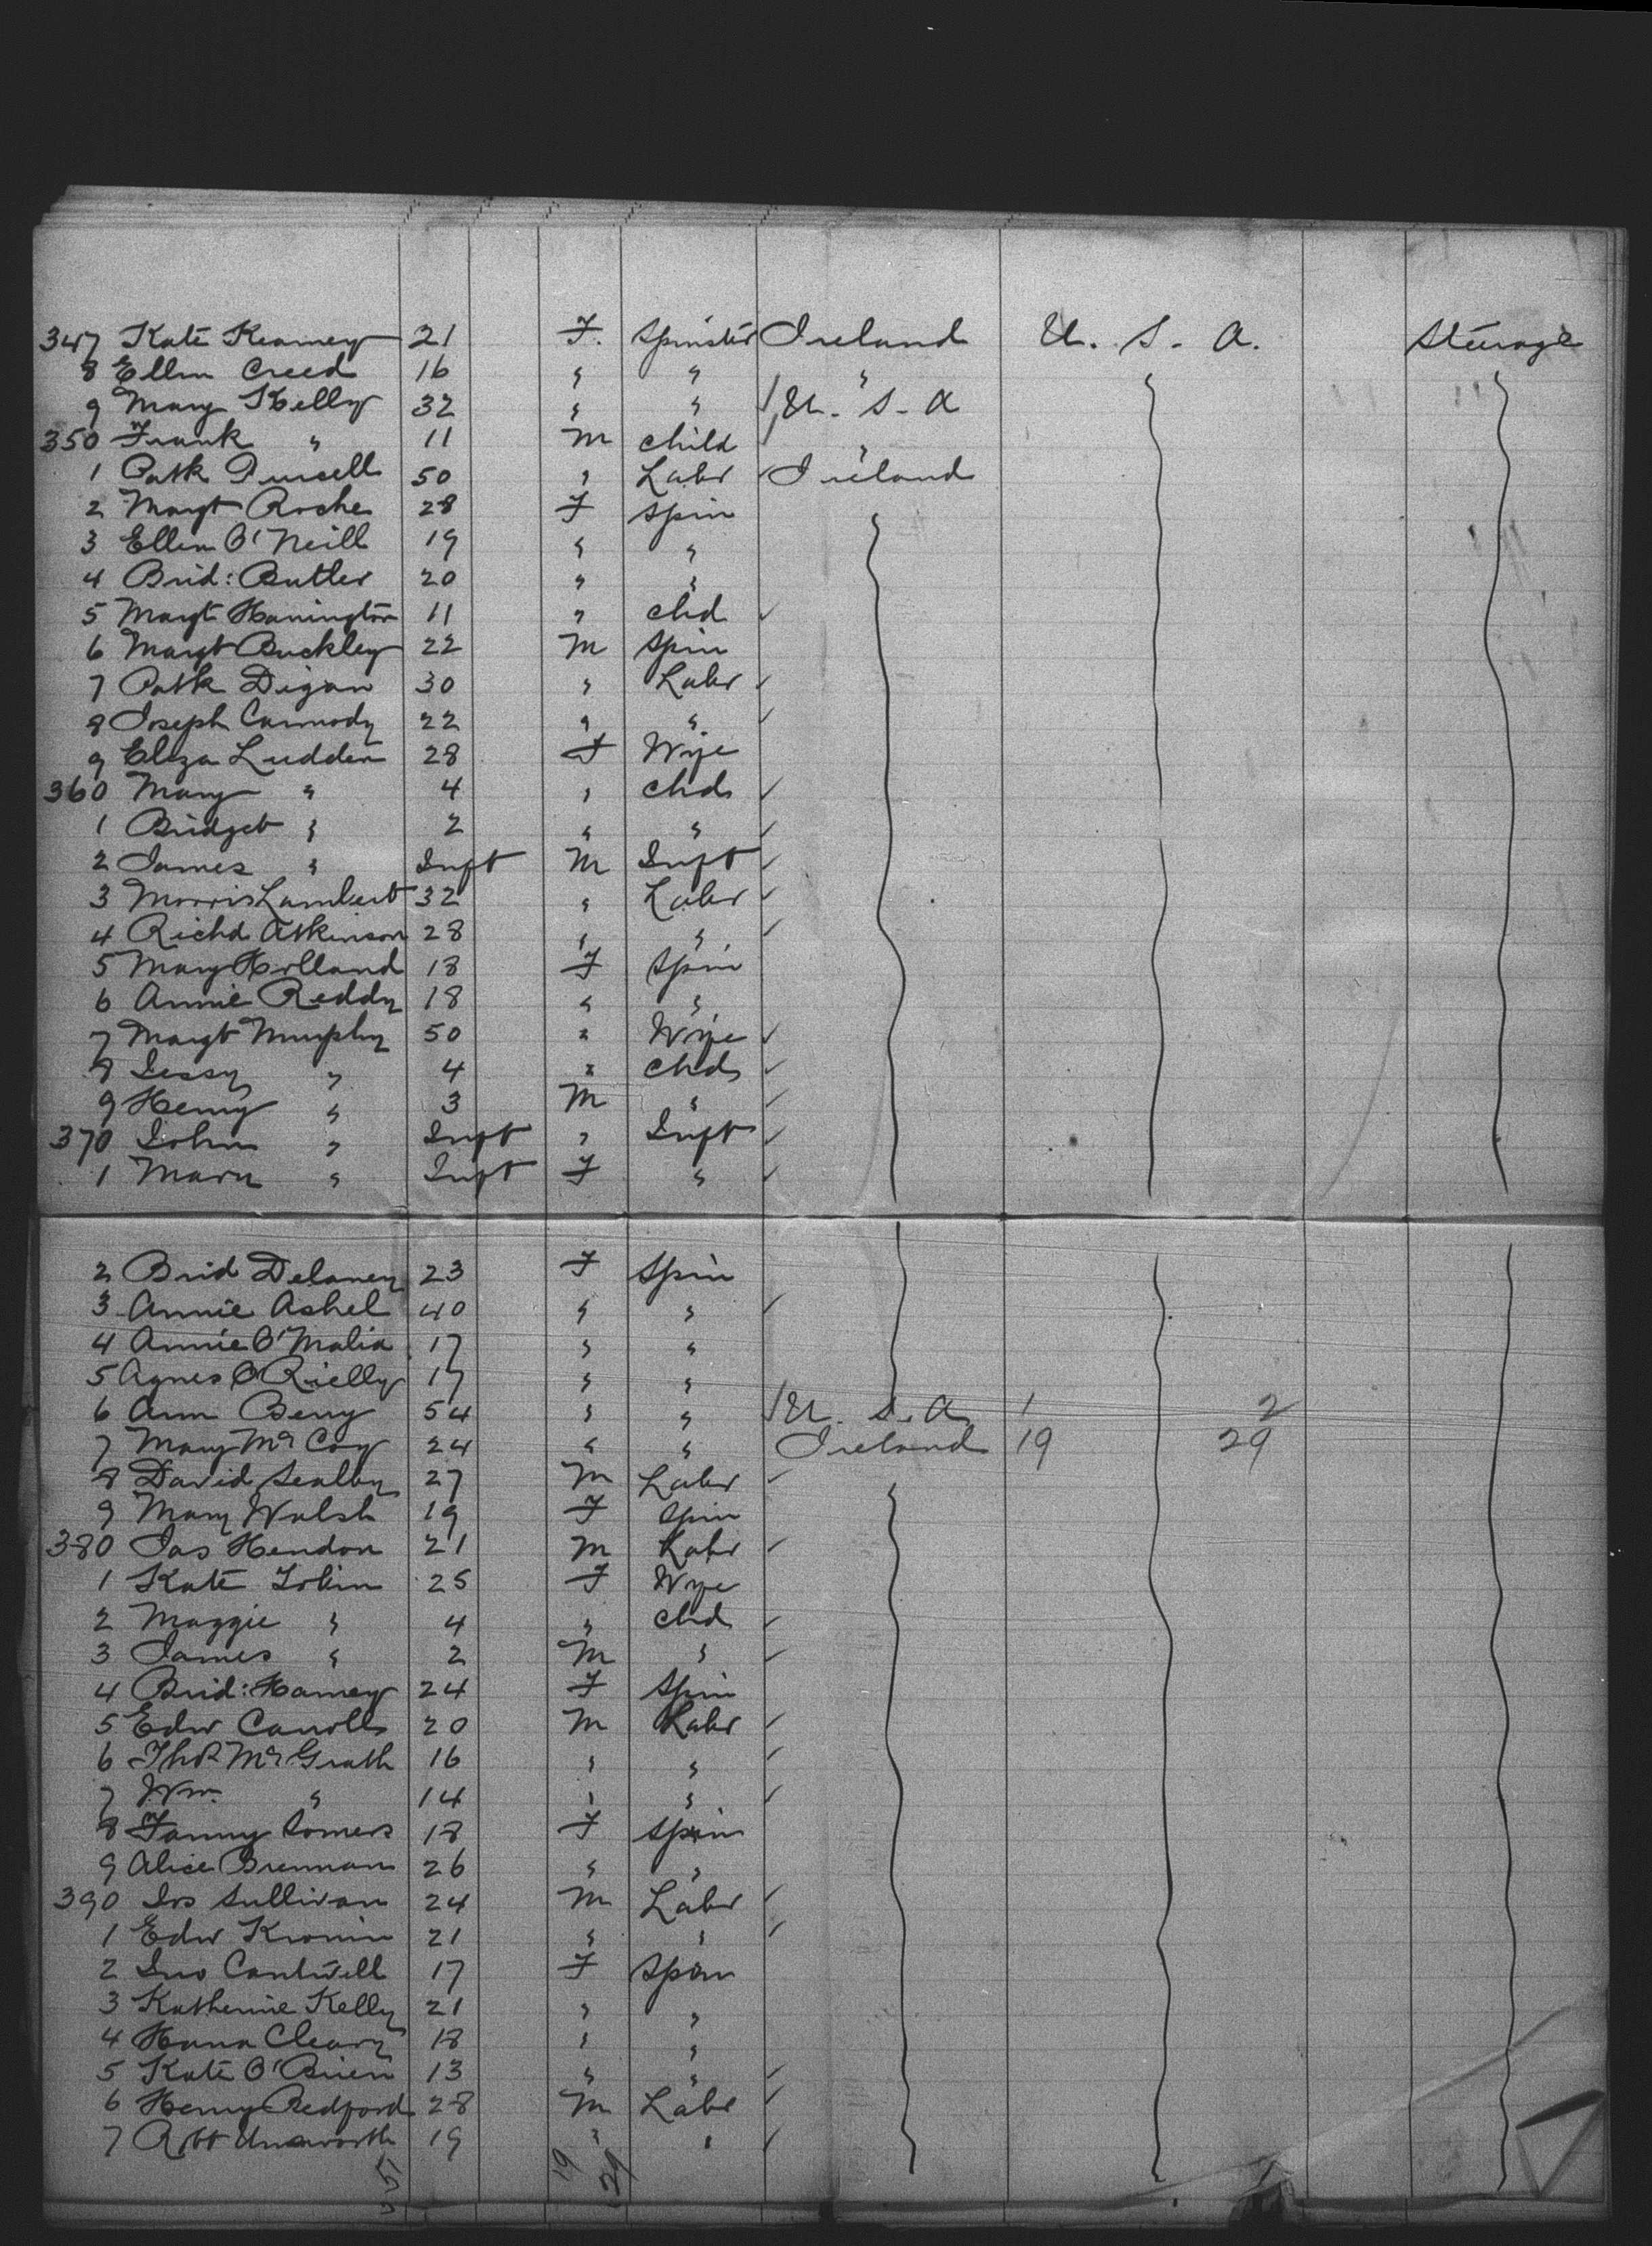 347 Kate Kearney 21 F. Spinster Ireland U. S. A. Steerage
8 Ellen Creed 16 " " "
9 Mary Kelly 32 " " U. S. A
350 Frank " 11 M child "
1 Patk Purcell 50 " Labr Ireland
2 Margt Roche 28 F Spin
3 Ellen O'Neill 19 " "
4 Brid: Butler 20 " "
5 Margt Hanington 11 " chd
6 Margt Buckley 22 M Spin
7 Patk Digan 30 " Labr
8 Joseph Carmody 22 " "
9 Eliza Ludden 28 F Wife
360 Mary " 4 " chds
1 Bridget " 2 " "
2 James " Inft M Inft
3 Morris Lambert 32 " Labr
4 Richd Atkinson 28 " "
5 Mary Holland 18 F Spin
6 Annie Reddy 18 " "
7 Margt Murphy 50 " Wife
8 Jessy " 4 " chds
9 Henry " 3 M "
370 John " Inft " Inft
1 Mary " Inft F "
2 Brid Delaney 23 F Spin
3 Annie Ashel 40 " "
4 Annie O'Malia 17 " "
5 Agnes O'Rielly 17 " "
6 Ann Berry 54 " " U. S. A 1 2
7 Mary McCoy 24 " " Ireland 19 29
8 David 27 M Labr
9 Mary Walsh 19 F Spin
380 Jas Hendon 21 M Labr
1 Kate Tobin 25 F Wife
2 Maggie " 4 " chd
3 James " 2 M "
4 Brid: Harney 24 F Spin
5 Edw Carroll 20 M Labr
6 Thos McGrath 16 " "
7 Wm. " 14 " "
8 Fanny Somers 18 F Spin
9 Alice Brennan 26 " "
390 Jos Sullivan 24 M Labr
1 Edw Kronin 21 " "
2 Jno Cantwell 17 F Spin
3 Katherine Kelly 21 " "
4 Hana Cleary 18 " "
5 Kate O'Brien 13 " "
6 Henry Redford 28 M Labr
7 Robt Unsworth 19 " "
19 29